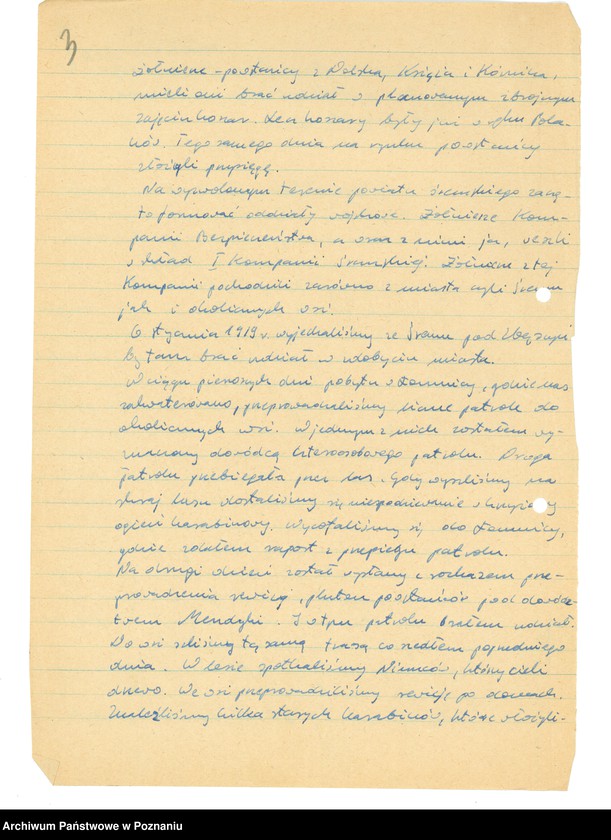 3
żołnierze-powstańcy z Dolska, Książa i Kórnika,
mieli oni brać udział w planowanym zbrojnym
zajęciu koszar. Lecz koszary były już w ręku Pola-
ków. Tego samego dnia na rynku powstańcy
złożyli przysięgę.
Na wyzwolonym terenie powiatu śremskiego zaczę-
to formować oddziały wojskowe. Żołnierze Kom-
panii Bezpieczeństwa, a wraz z nimi ja, weszli
w skład I Kompanii Śremskiej. Żołnierze z tej
Kompanii pochodzili zarówno z miasta czyli Śremu
jak i okolicznych wsi.
6 stycznia 1919 r. wyjechaliśmy ze Śremu pod Zbąszyń
by tam brać udział w zdobyciu miasta.
W ciągu pierwszych dni pobytu w Łomnicy, gdzie nas
zakwaterowano, przeprowadzaliśmy liczne patrole do
okolicznych wsi. W jednym z nich zostałem wy-
znaczony dowódcą czteroosobowego patrolu. Droga
patrolu przebiegała przez las. Gdy wyszliśmy na
skraj lasu dostaliśmy się niespodziewanie w
ogień karabinowy. Wycofaliśmy się do Łomnicy,
gdzie zdałem raport z przebiegu patrolu.
Na drugi dzień został wysłany z rozkazem prze-
prowadzenia rewizji, pluton powstańców pod dowódz-
twem Mendyki. I w tym patrolu brałem udział.
Do wsi szliśmy tą samą trasą co szedłem poprzedniego
dnia. W lesie spotkaliśmy Niemców, którzy cieli
drzewo. We wsi przeprowadziliśmy rewizję po domach.
Znaleźliśmy kilka starych karabinów, które złożyli-
Archiwum Państwowe w Poznaniu